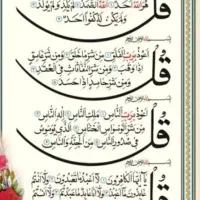 هُوَ اللَّهُ أَحَدٌ اللَّهُ الصَّمَدُ لَمْ يَلِدْ وَلَمْ يُولَدْ
وَلَمْ يَكُن لَّهُ كُفُوًا أَحَدٌ
قُلْ
أَعُوذُ بِرَبِّ الْفَلَقِ مِن شَرِّ مَا خَلَقَ وَمِن شَرِّ غَاسِقٍ
إِذَا وَقَبَ وَمِن شَرِّ النَّفَّاثَاتِ فِي الْعُقَدِ
وَمِن شَرِّ حَاسِدٍ إِذَا حَسَدَ
قُلْ
أَعُوذُ بِرَبِّ النَّاسِ مَلِكِ النَّاسِ إِلَٰهِ النَّاسِ
مِن شَرِّ الْوَسْوَاسِ الْخَنَّاسِ الَّذِي يُوَسْوِسُ
فِي صُدُورِ النَّاسِ مِنَ الْجِنَّةِ وَالنَّاسِ
قُلْ
يَا أَيُّهَا الْكَافِرُونَ لَا أَعْبُدُ مَا تَعْبُدُونَ وَلَا أَنتُمْ
عَابِدُونَ مَا أَعْبُدُ وَلَا أَنَا عَابِدٌ مَّا عَبَدتُّمْ وَلَا أَنتُمْ